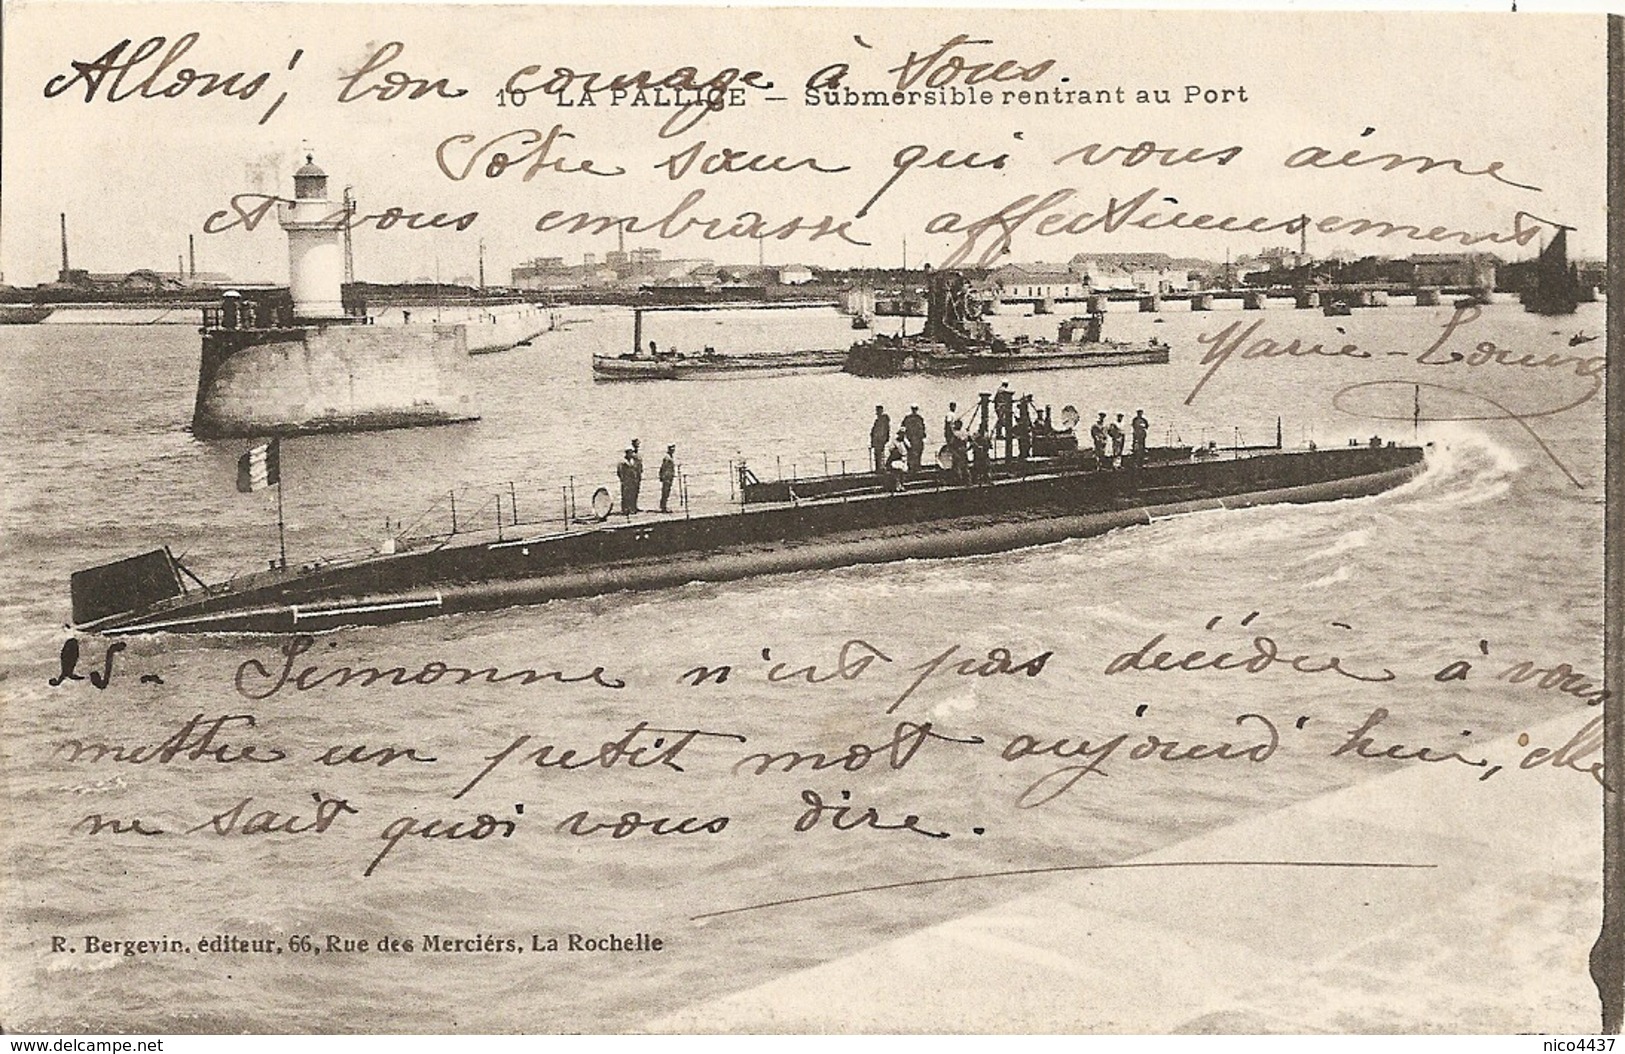 Allons, bon courage à tous.
10 LA PALLICE — Submersible rentrant au Port
Votre sœur qui vous aime
et vous embrasse affectueusement
Marie-Louise
PS- Simonne n'est pas décidée à vous
mettre un petit mot aujourd'hui, elle
ne sait quoi vous dire.
R. Bergevin, éditeur, 66, Rue des Merciérs, La Rochelle
www.delcampe.net
nico4437